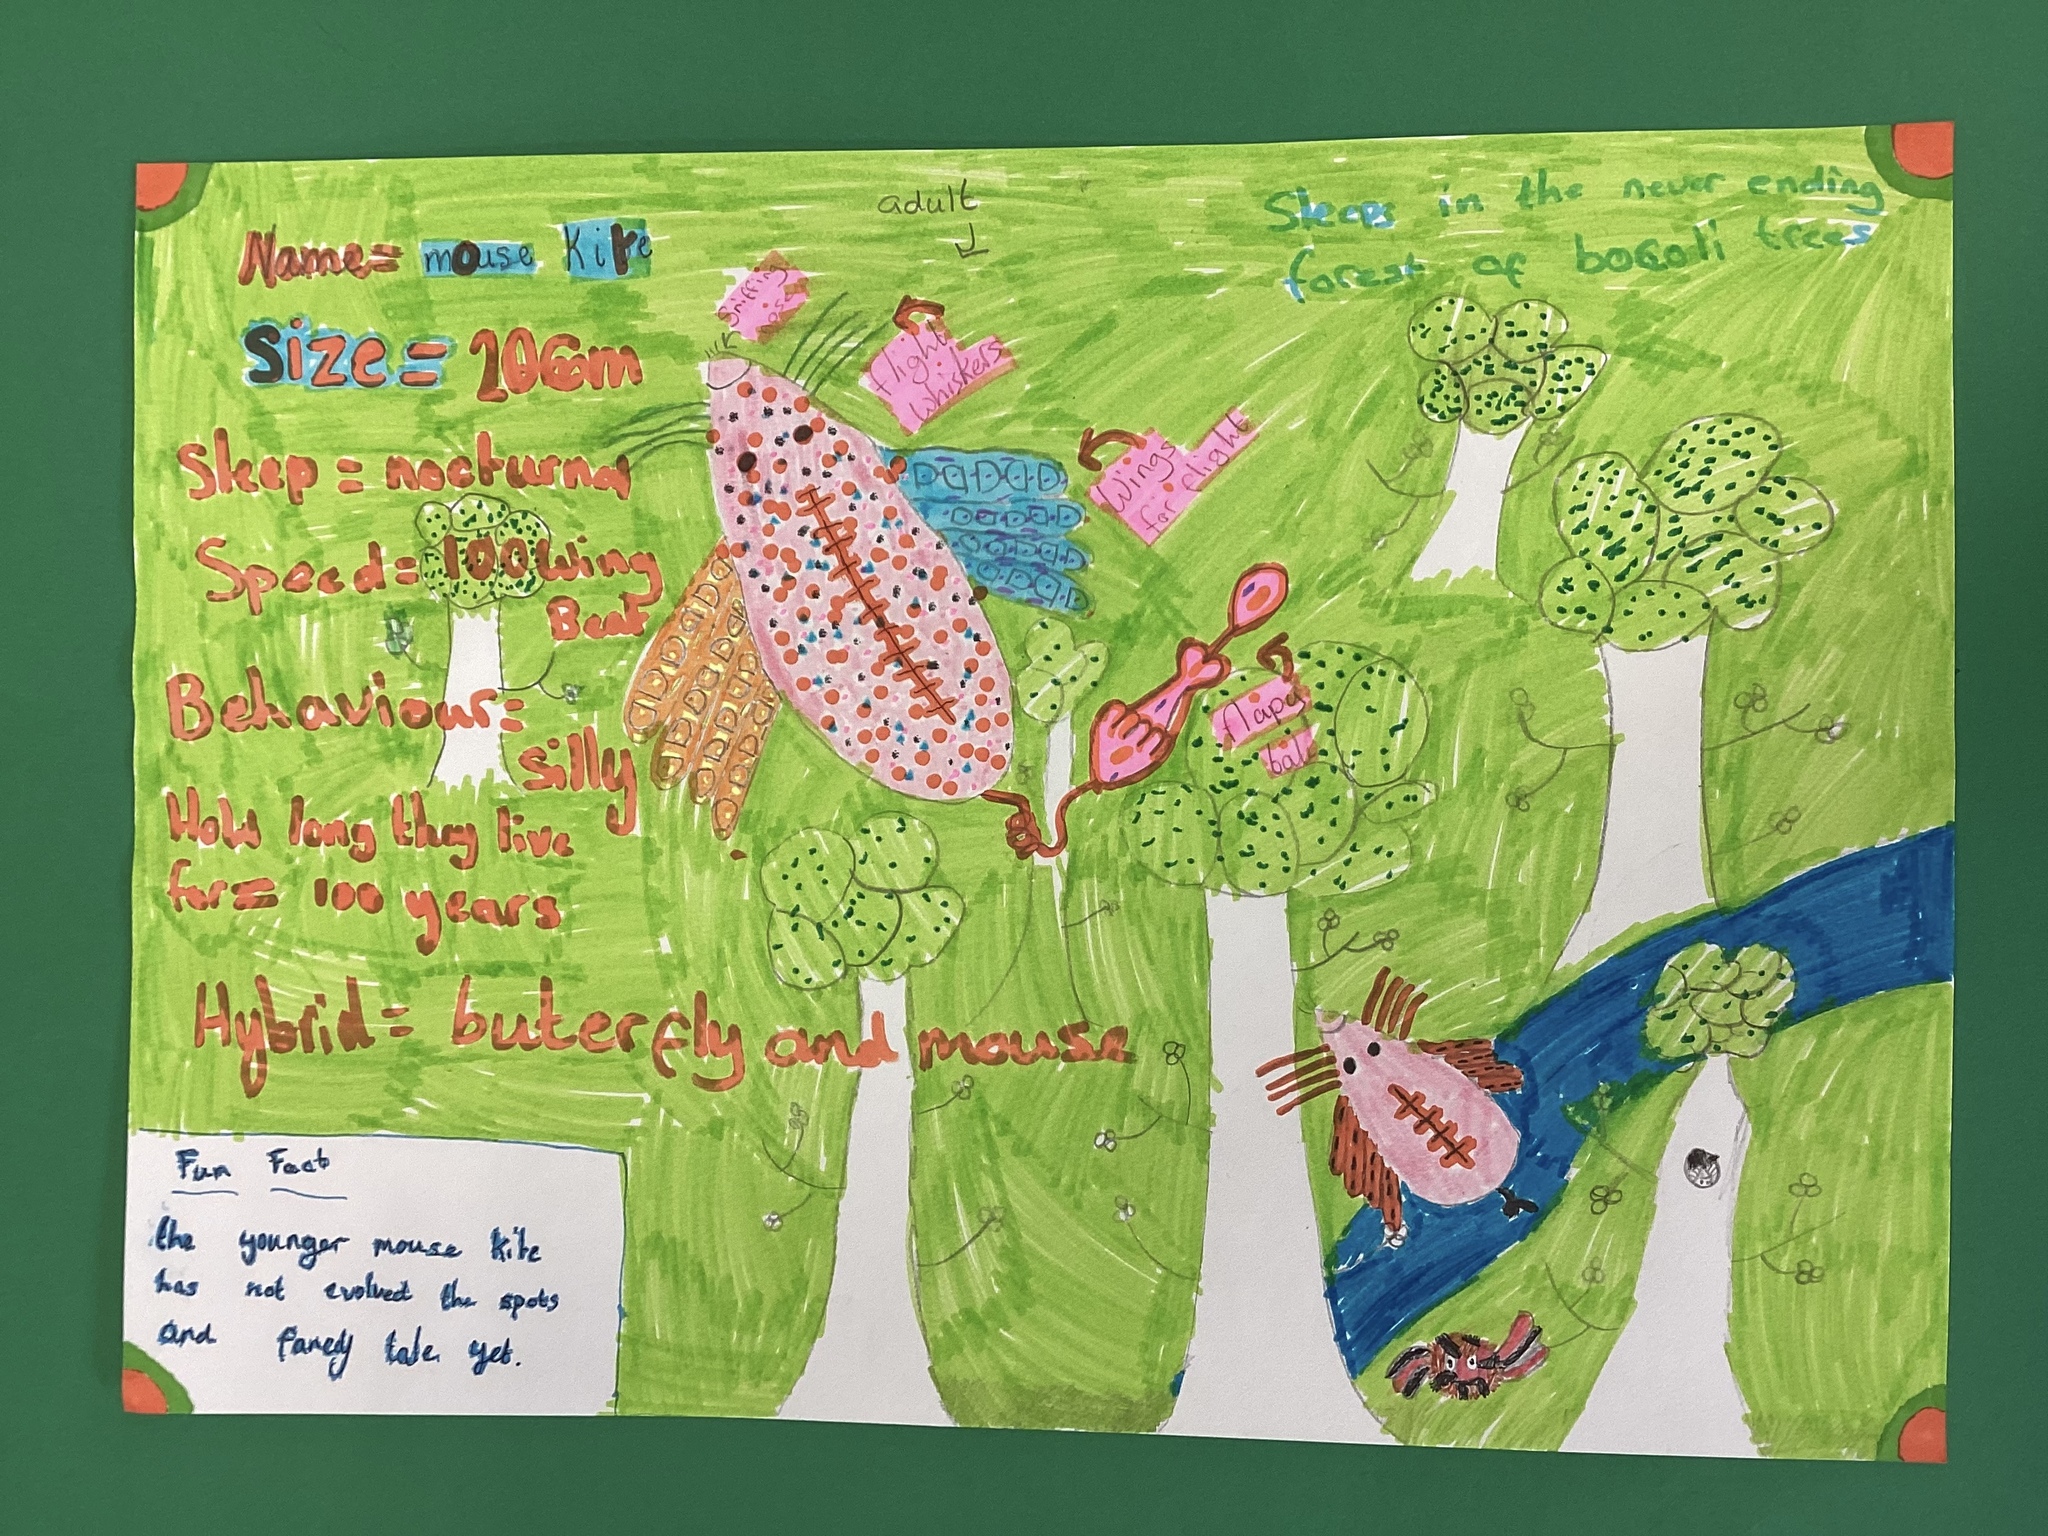 Name= mouse Kite
Size = 10cm
Sleep = nocturnal
Speed= 100 wing
Beat
Behaviour=
silly
How long they live
for= 100 years
Hybrid= buterfly and mouse
adult
Sniffing
flight
whiskers
Wings
for flight
flapy
Sleeps in the never ending
forest of bocoli trees
Fun Fact
the younger mouse kite
has not evolved the spots
and
yet.